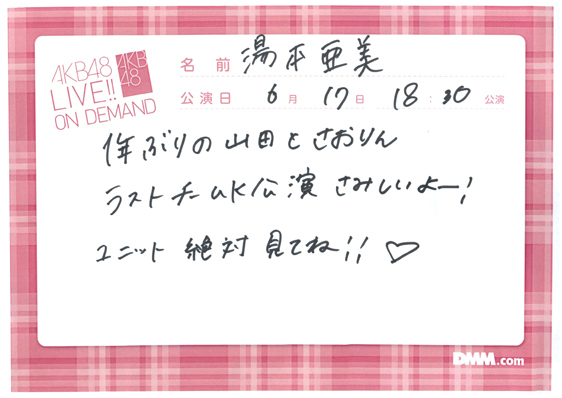 AKB48
LIVE!!
ON DEMAND
AKB
48
名前 湯本亜美
公演日 6月 17日 18:30 公演
1年ぶりの山田とさおりん
ラストチームK公演 さみしいよー!
ユニット 絶対見てね!! ♡
DMM.com